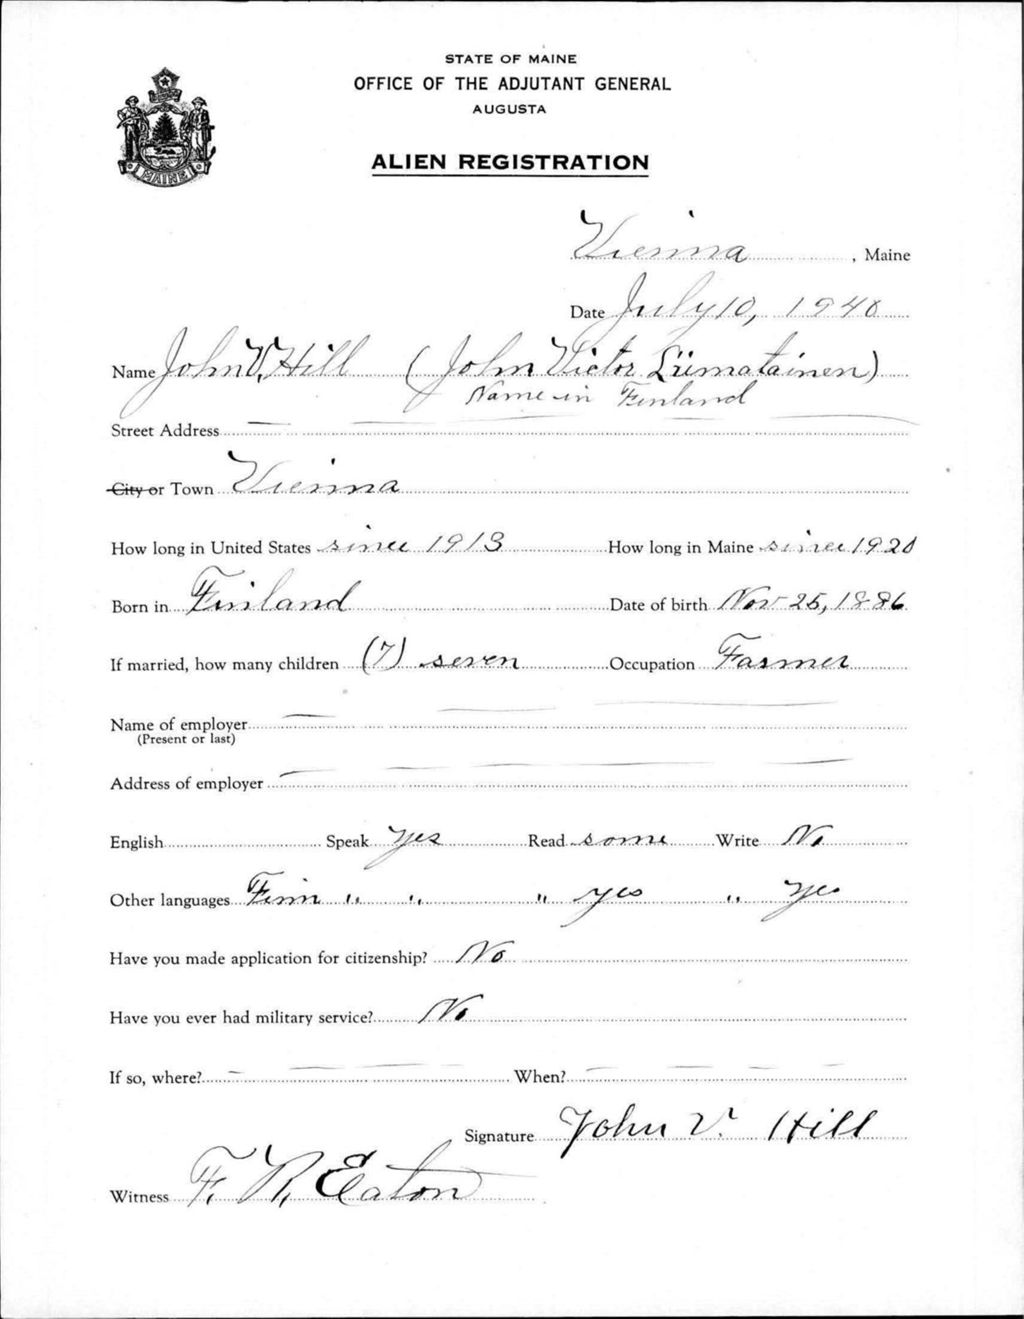 STATE OF MAINE
OFFICE OF THE ADJUTANT GENERAL
AUGUSTA
ALIEN REGISTRATION
MAINE
Vienna, Maine
Date July 10, 1940
Name John V. Hill (John Victor Liimatainen)
Name in Finland
Street Address
City or Town Vienna
How long in United States since 1913 How long in Maine since 1920
Born in Finland Date of birth Nov 25, 1886
If married, how many children (7) seven Occupation Farmer
Name of employer
(Present or last)
Address of employer
English Speak yes Read some Write No
Other languages Finn " " " yes " yes
Have you made application for citizenship? No
Have you ever had military service? No
If so, where? When?
Signature John V. Hill
Witness F. R. Eaton